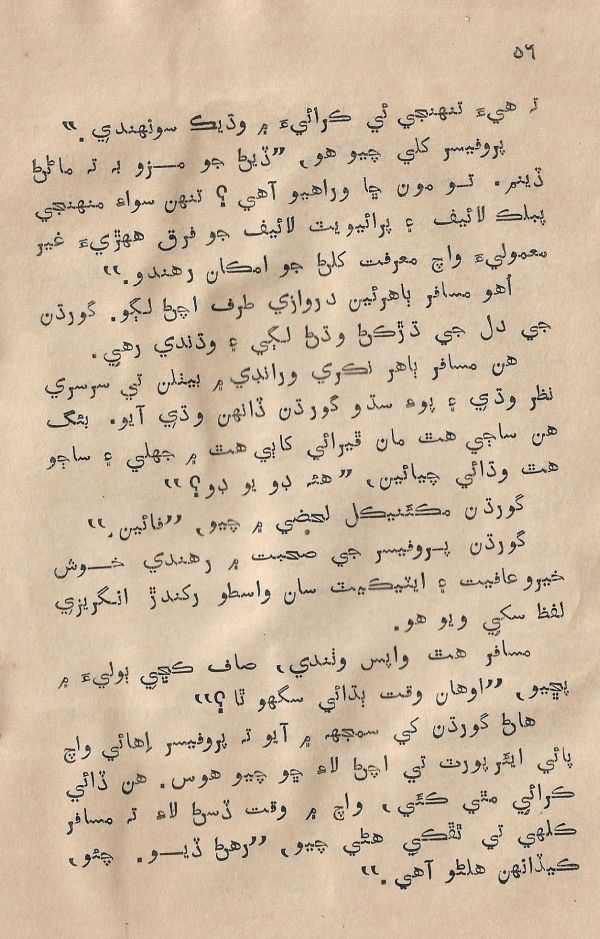 ٥٦
تہ هيءَ تنهنجي ئي ڪرائيءَ ۾ وڌيڪ سونهندي."
پروفيسر کلي چيو هو، "ڏيڻ جو مـزو بہ تہ ماڻڻ
ڏينم. تـو مون ڇا وراهيو آهي؟ تنهن سواءِ منهنجي
پبلڪ لائيف ۽ پرائيويٽ لائيف جو فرق ههڙيءَ غير
معموليءَ واچ معرفت کلڻ جو امڪان رهندو."
اُهو مسافر ٻاهرئين دروازي طرف اچڻ لڳو. گورڌن
جي دل جي ڌڙڪڻ وڌڻ لڳي ۽ وڌندي رهي.
هن مسافر ٻاهر نڪري ورانڊي ۾ بيٺلن تي سرسري
نظر وڌي ۽ پوءِ سڌو گورڌن ڏانهن وڌي آيو. بئگ
هن ساڄي هٿ مان ڦيرائي کاٻي هٿ ۾ جهلي ۽ ساڄو
هٿ وڌائي چيائين، "هئہ ڊو يو ڊو؟"
گورڌن مڪئنيڪل لحضي ۾ چيو، "فائين."
گورڌن پـروفيسر جي صحبت ۾ رهندي خـوش
خيرو عافيت ۽ ايٽيڪيٽ سان واسطو رکندڙ انگريزي
لفظ سکي ويو هو.
مسافر هٿ واپس وٺندي، صاف ڪڇي ٻوليءَ ۾
پڇيو، "اوهان وقت ٻڌائي سگهو ٿا؟"
هاڻ گورڌن کي سمجهہ ۾ آيو تہ پروفيسر اِهائي واچ
پائي ايئرپورٽ تي اچڻ لاءِ ڇو چيو هوس. هن ڏائي
ڪرائي مٿي کڻي، واچ ۾ وقت ڏسڻ لاءِ تہ مسافر
ڪلهي تي ٿڦڪي هڻي چيو، "رهڻ ڏيـو. چئو،
ڪيڏانهن هلڻو آهي."